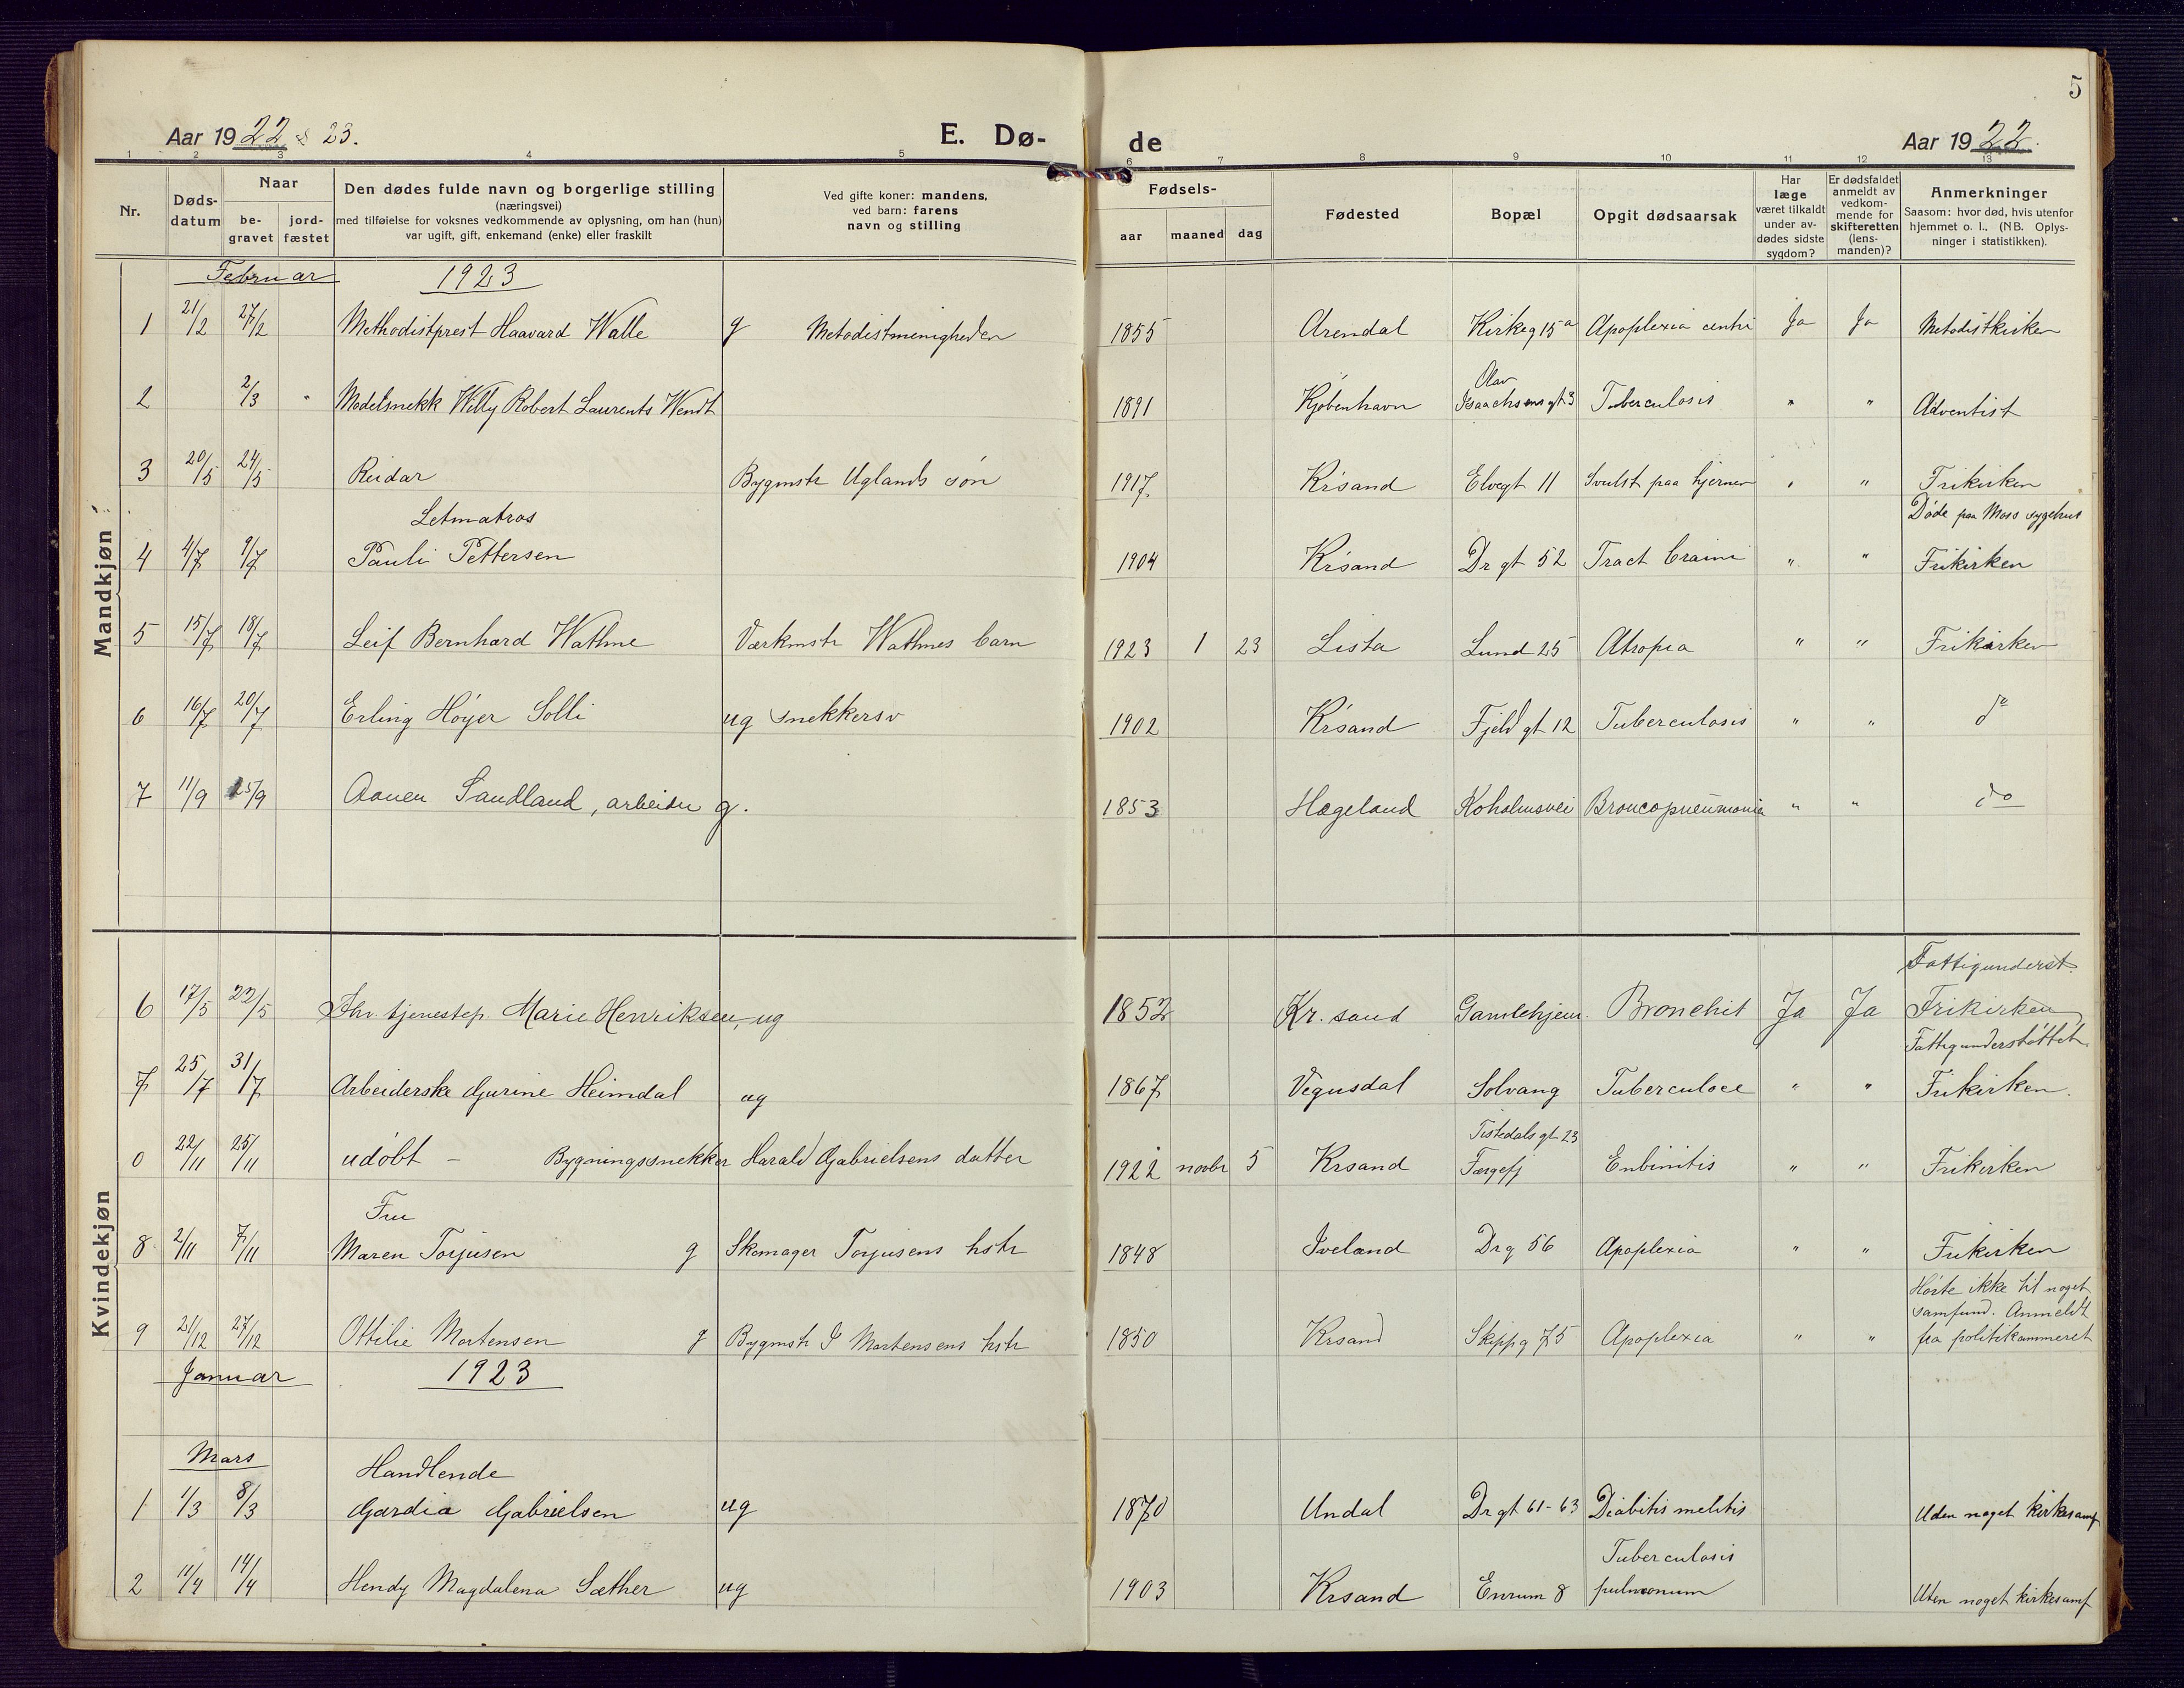 5
Aar 1922 & 23.
E. Dø-
de
Aar 1922.
1 2 3 4 5 6 7 8 9 10 11 12 13
Nr.
Døds-
datum
Naar
be-
gravet
jord-
fæstet
Den dødes fulde navn og borgerlige stilling
(næringsvei)
med tilføielse for voksnes vedkommende av oplysning, om han (hun)
var ugift, gift, enkemand (enke) eller fraskilt
Ved gifte koner: mandens,
ved barn: farens
navn og stilling
Fødsels-
aar
maaned
dag
Fødested
Bopæl
Opgit dødsaarsak
Har
læge
været tilkaldt
under av-
dødes sidste
sygdom?
Er dødsfaldet
anmeldt av
vedkom-
mende for
skifteretten
(lens-
manden)?
Anmerkninger
Saasom: hvor død, hvis utenfor
hjemmet o. l.. (NB. Oplys-
ninger i statistikken).
Mandkjøn
Februar 1923
1 21/2 27/2 Methodistprest Haavard Walle g Metodistmenigheden 1855 Arendal Kirkeg 15a Apoplexia Ja Ja Metodistkirken
Olav
2 2/3 " Modelsnekk Willy Robert Laurents Wendt 1891 Kjøbenhavn Isaachsens gt 3 Tuberculosis " " Adventist
3 20/5 24/5 Reidar Bygmstr Uglands søn 1917 Krsand Elvegt 11 Svulst paa hjernen " " Frikirken
Letmatros
Døde paa Moss sygehus
4 4/7 9/7 Pauli Pettersen 1904 Krsand Dr gt 52 Fract Craini " " Frikirken
5 15/7 18/7 Leif Bernhard Wathne Værkmstr Wathnes barn 1923 1 23 Lista Lund 25 Atropia " " Frikirken
6 16/7 20/7 Erling Høyer Solli ug snekkersv 1902 Krsand Fjeld gt 12 Tuberculosis " " do
7 11/9 15/9 Aanen Sandland, arbeider g. 1853 Hægeland Koholmsvei Broncopneumonia " " do
Kvindekjøn
Fattigunderst.
6 17/5 22/5 Fhv. tjenestep Marie Henriksen, ug 1852 Kr.sand Gamlehjem. Bronchit Ja Ja Frikirken
Fattigunderstøttet.
7 25/7 31/7 Arbeiderske Gurine Heimdal ug 1867 Vegusdal Solvang Tuberculose " " Frikirken.
Tistedals gt 23
0 22/11 25/11 udøbt - Bygningssnekker Harald Gabrielsens datter 1922 novbr 5 Krsand Færgefj " " Frikirken
Fru
8 2/11 7/11 Maren Torjusen g Skomager Torjusens hstr 1848 Iveland Drg 56 Apoplexia " " Frikirken
Hørte ikke til noget
samfund. Anmeldt
9 21/12 27/12 Ottilie Mortensen g Bygmstr I Mortensens hstr 1850 Krsand Skippg 75 Apoplexia " " fra politikammeret
Januar 1923
Mars Handlende
1 1/3 8/3 Gardia Gabrielsen ug 1870 Undal Dr gt 61-63 Diabitis melitis Uden noget kirkesamf
Tuberculosis
2 11/4 14/4 Hendy Magdalena Sæther ug 1903 Krsand Enrum 8 pulmonum Uten noget kirkesamf